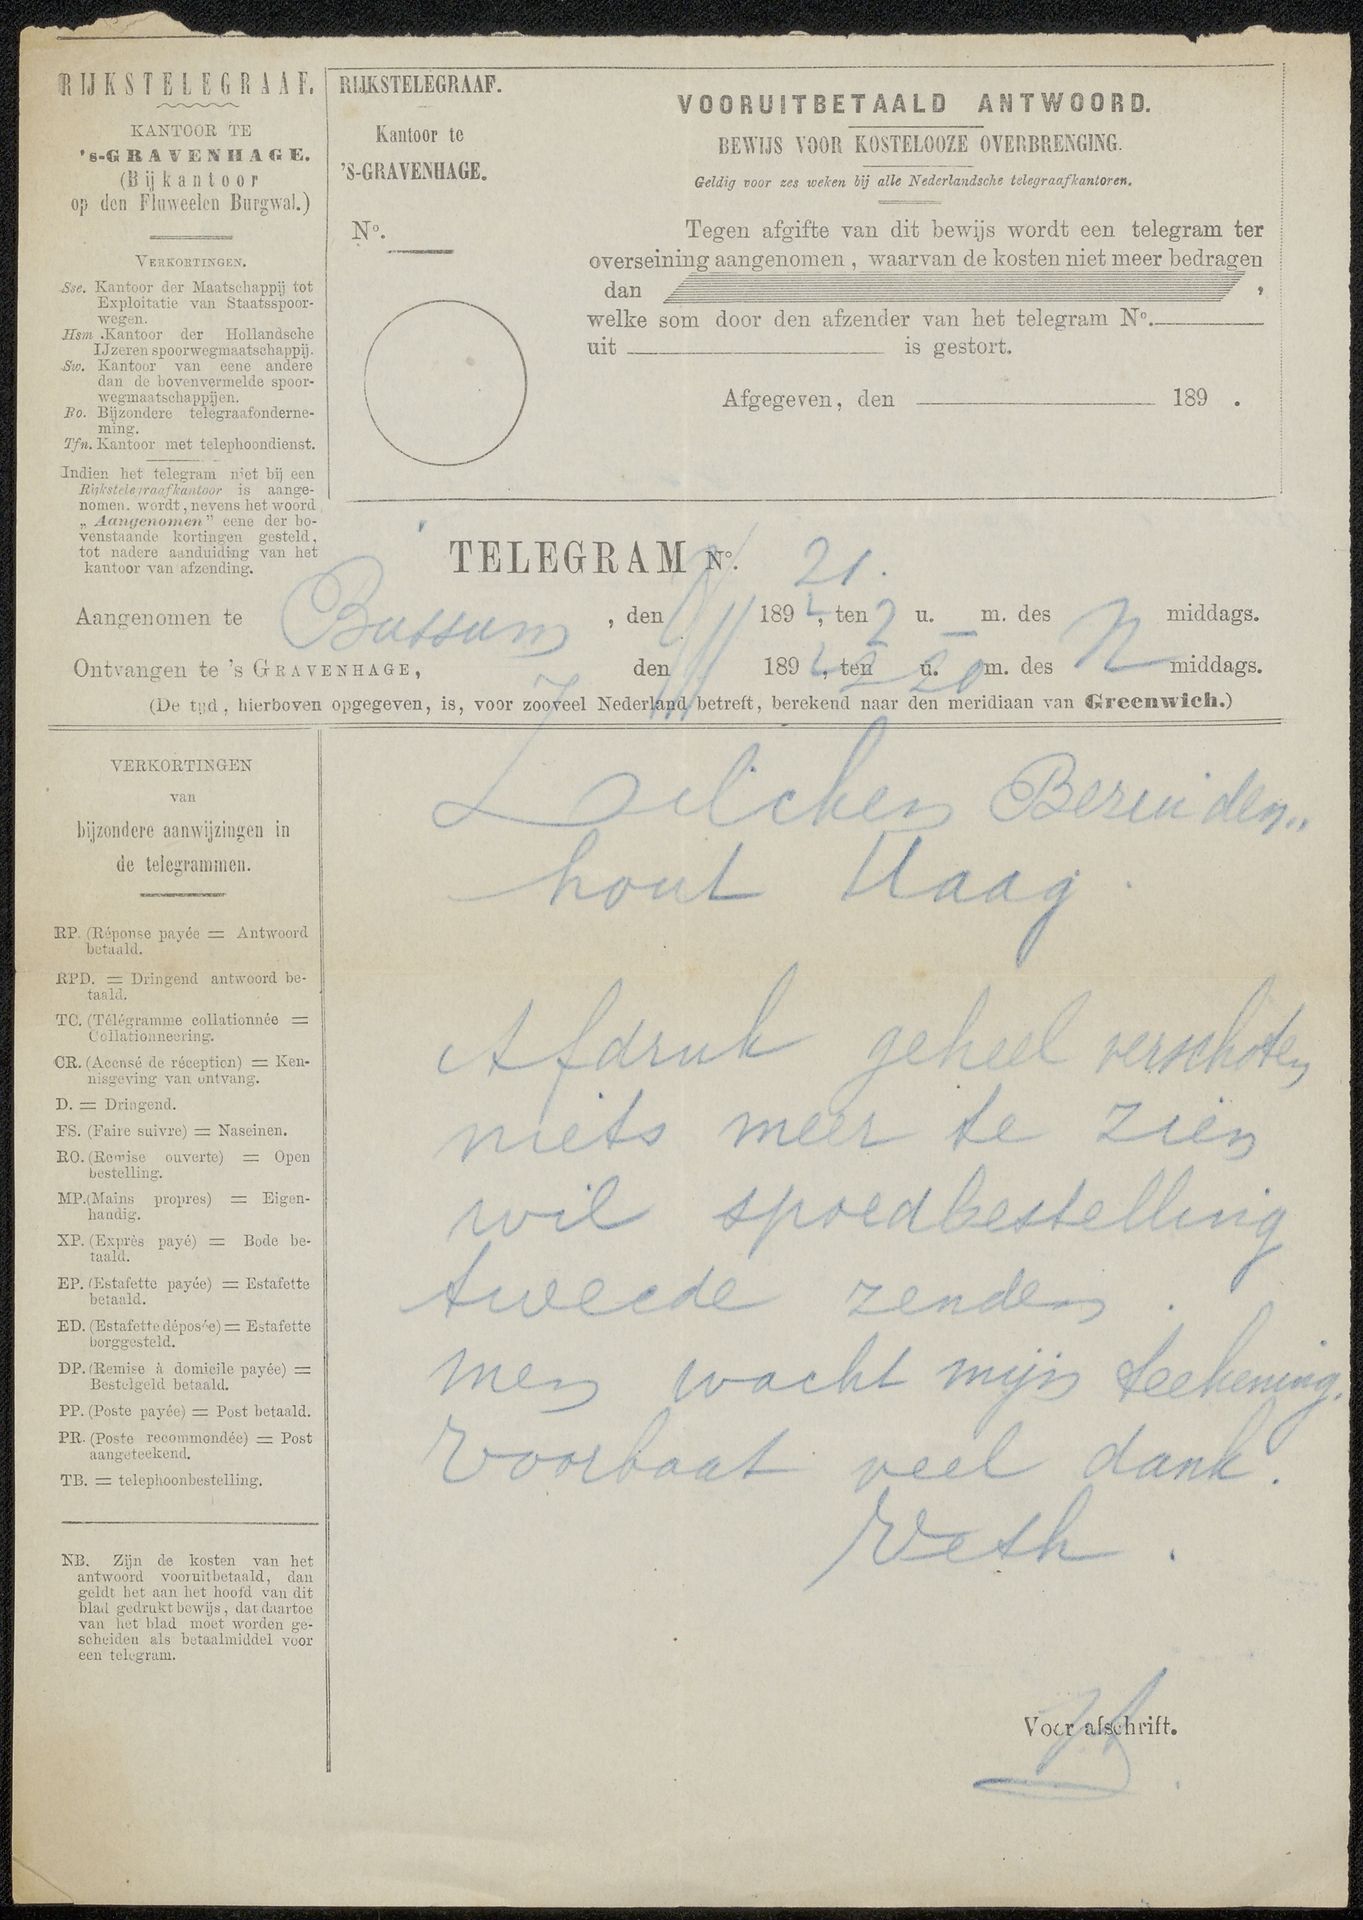 RIJKSTELEGRAAF.
KANTOOR TE
's-GRAVENHAGE.
(Bijkantoor
op den Fluweelen Burgwal.)
VERKORTINGEN.
Sse. Kantoor der Maatschappij tot
Exploitatie van Staatsspoor-
wegen.
Hsm. Kantoor der Hollandsche
IJzeren spoorwegmaatschappij.
Sw. Kantoor van eene andere
dan de bovenvermelde spoor-
wegmaatschappijen.
Bo. Bijzondere telegraafonderne-
ming.
Tfn. Kantoor met telephoondienst.
Indien het telegram niet bij een
Rijkstelegraafkantoor is aange-
nomen, wordt, nevens het woord
„Aangenomen" eene der bo-
venstaande kortingen gesteld,
tot nadere aanduiding van het
kantoor van afzending.
RIJKSTELEGRAAF.
Kantoor te
'S-GRAVENHAGE.
No.
VOORUITBETAALD ANTWOORD.
BEWIJS VOOR KOSTELOOZE OVERBRENGING.
Geldig voor zes weken bij alle Nederlandsche telegraafkantoren.
Tegen afgifte van dit bewijs wordt een telegram ter
overseining aangenomen, waarvan de kosten niet meer bedragen
dan ,
welke som door den afzender van het telegram No.
uit is gestort.
Afgegeven, den 189 .
TELEGRAM No. 21.
Aangenomen te Bussum, den 189 , ten 2 u. — m. des N middags.
Ontvangen te 's GRAVENHAGE, den 189 , ten 2 u. 20 m. des N middags.
(De tijd, hierboven opgegeven, is, voor zooveel Nederland betreft, berekend naar den meridiaan van Greenwich.)
VERKORTINGEN
van
bijzondere aanwijzingen in
de telegrammen.
RP. (Réponse payée = Antwoord
betaald.
RPD. = Dringend antwoord be-
taald.
TC. (Télégramme collationnée =
Collationneering.
CR. (Accusé de réception) = Ken-
nisgeving van ontvang.
D. = Dringend.
FS. (Faire suivre) = Naseinen.
RO. (Remise ouverte) = Open
bestelling.
MP. (Mains propres) = Eigen-
handig.
XP. (Exprès payé) = Bode be-
taald.
EP. (Estafette payée) = Estafette
betaald.
ED. (Estafette déposée) = Estafette
borggesteld.
DP. (Remise à domicile payée) =
Bestelgeld betaald.
PP. (Poste payée) = Post betaald.
PR. (Poste recommondée) = Post
aangeteekend.
TB. = telephoonbestelling.
NB. Zijn de kosten van het
antwoord vooruitbetaald, dan
geldt het aan het hoofd van dit
blad gedrukt bewijs, dat daartoe
van het blad moet worden ge-
scheiden als betaalmiddel voor
een telegram.
Zilcken Bezuiden..
hout Haag.
Afdruk geheel verschoten
niets meer te zien
wil spoedbestelling
tweede zenden.
men wacht mijn teekening.
Voorbaat veel dank.
Veth.
Voor afschrift.